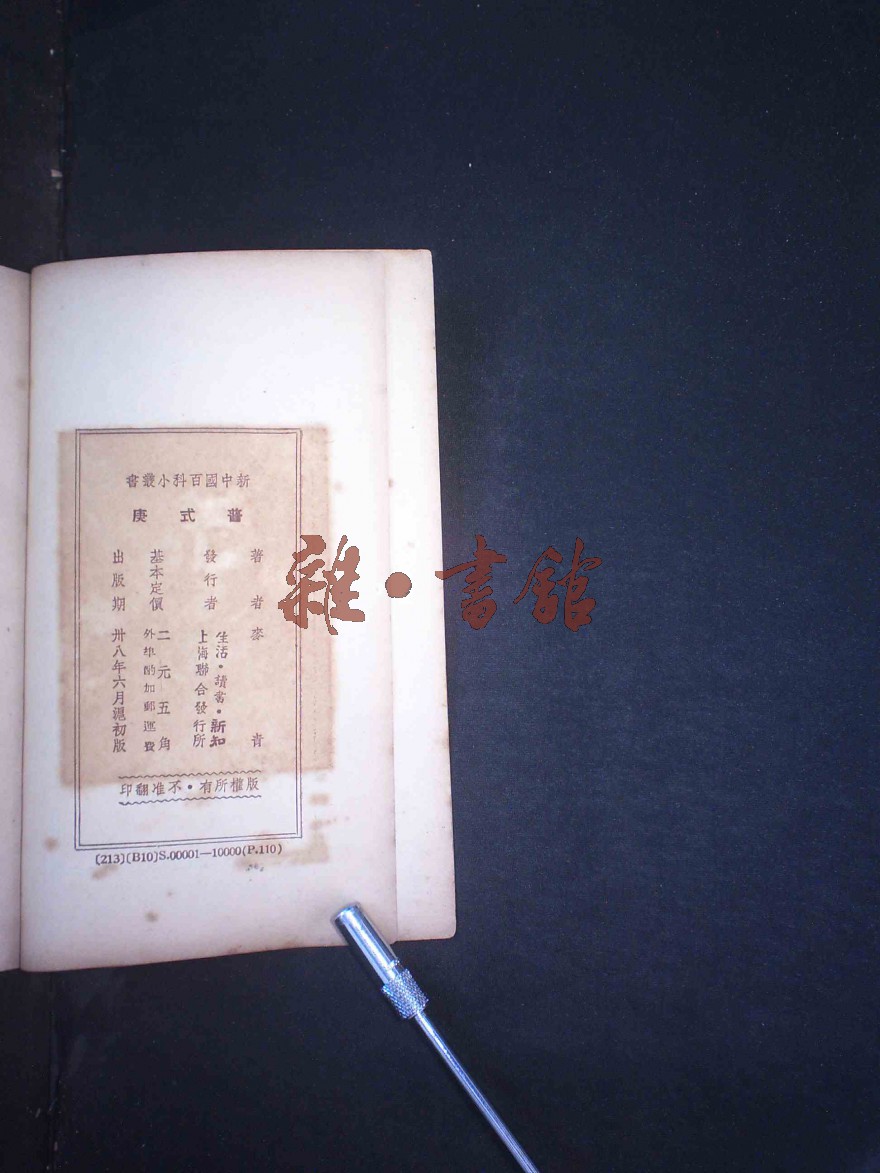 新中國百科小叢書
普式庚
著者 麥青
發行者 生活·讀書·新知
上海聯合發行所
基本定價 二元五角
外埠酌加郵運費
出版期 卅八年六月滬初版
版權所有·不准翻印
(213)(B10)S.00001—10000(P.110)
雜·書館